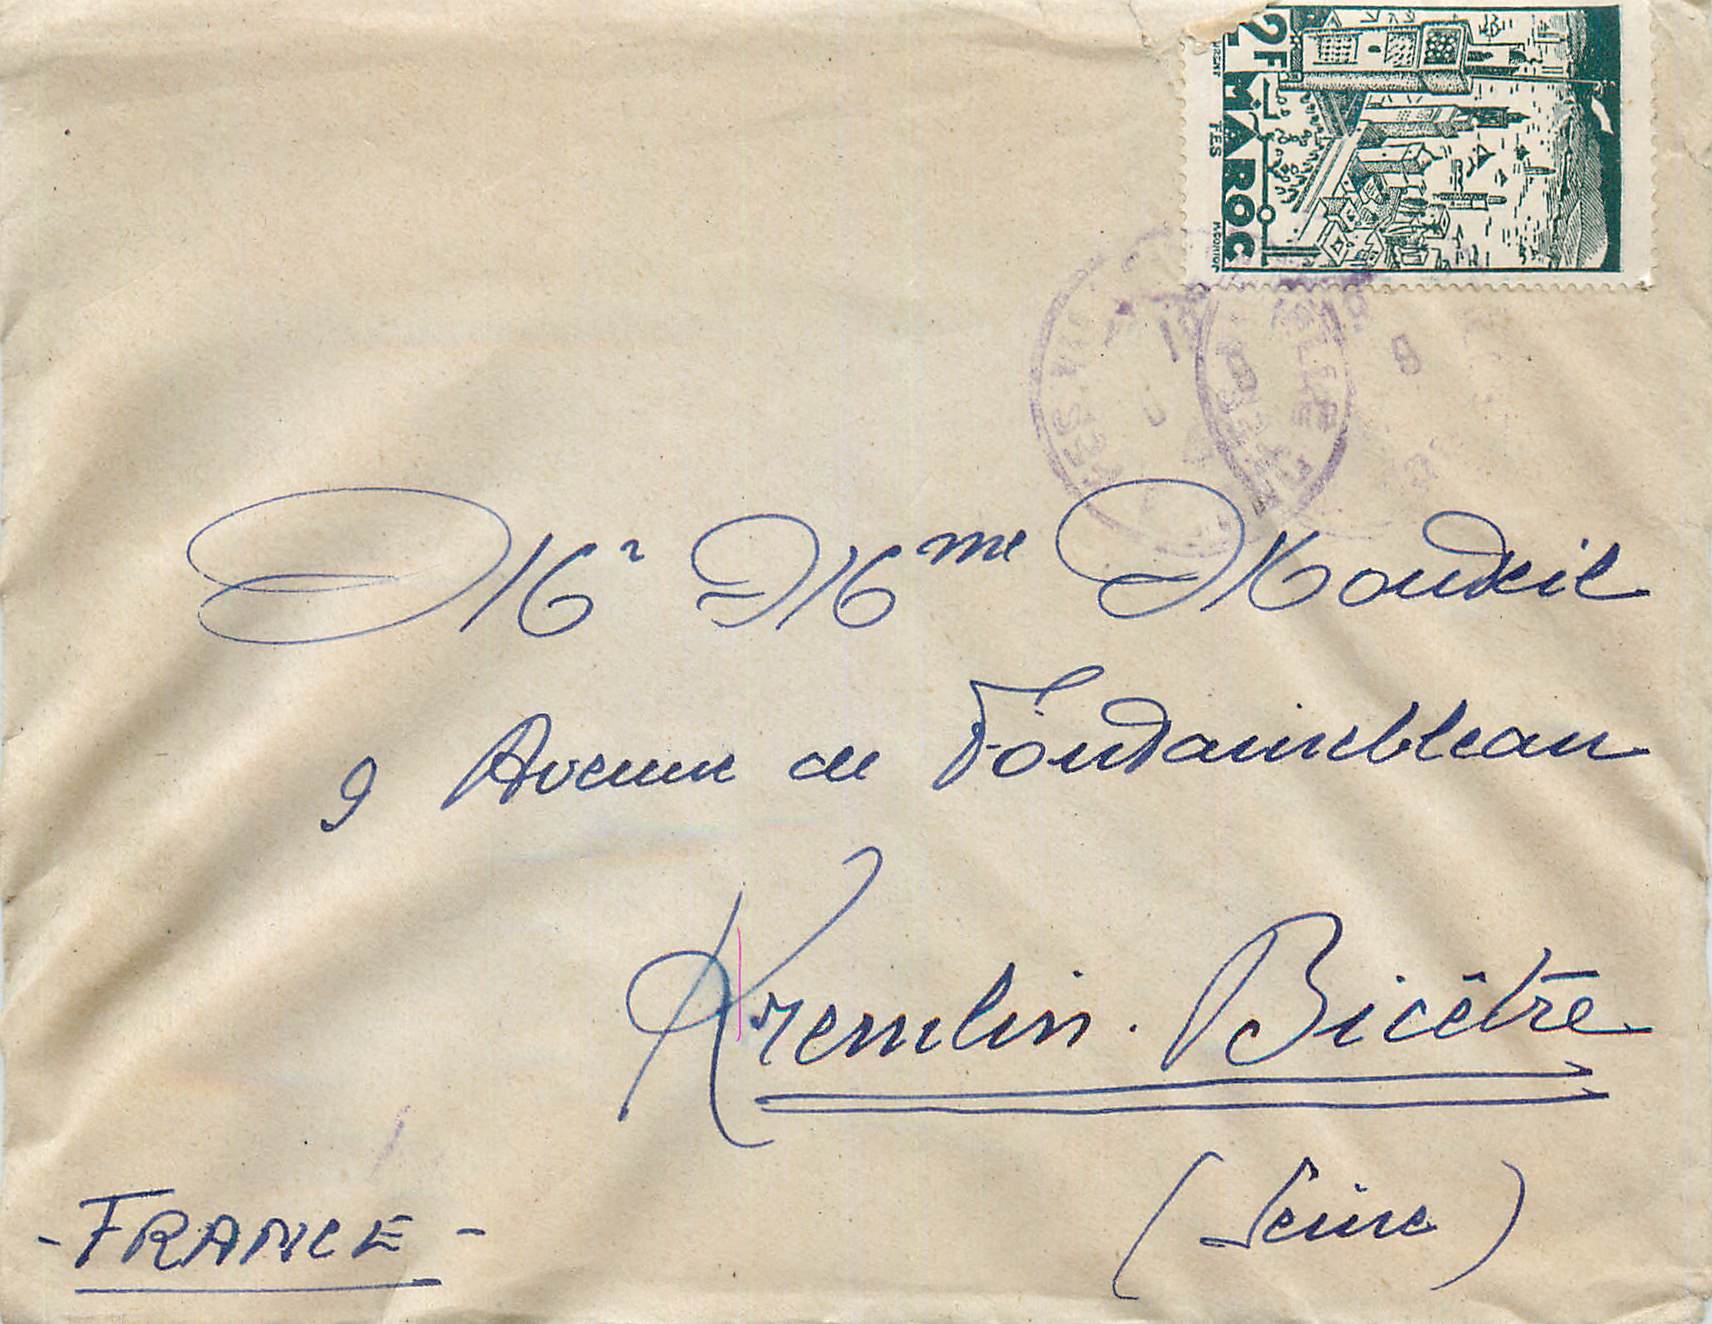 2F MAROC
FES
Mr Mme Mouteil
9 Avenue de Fontainebleau
Kremlin. Bicêtre
(Seine)
- FRANCE -